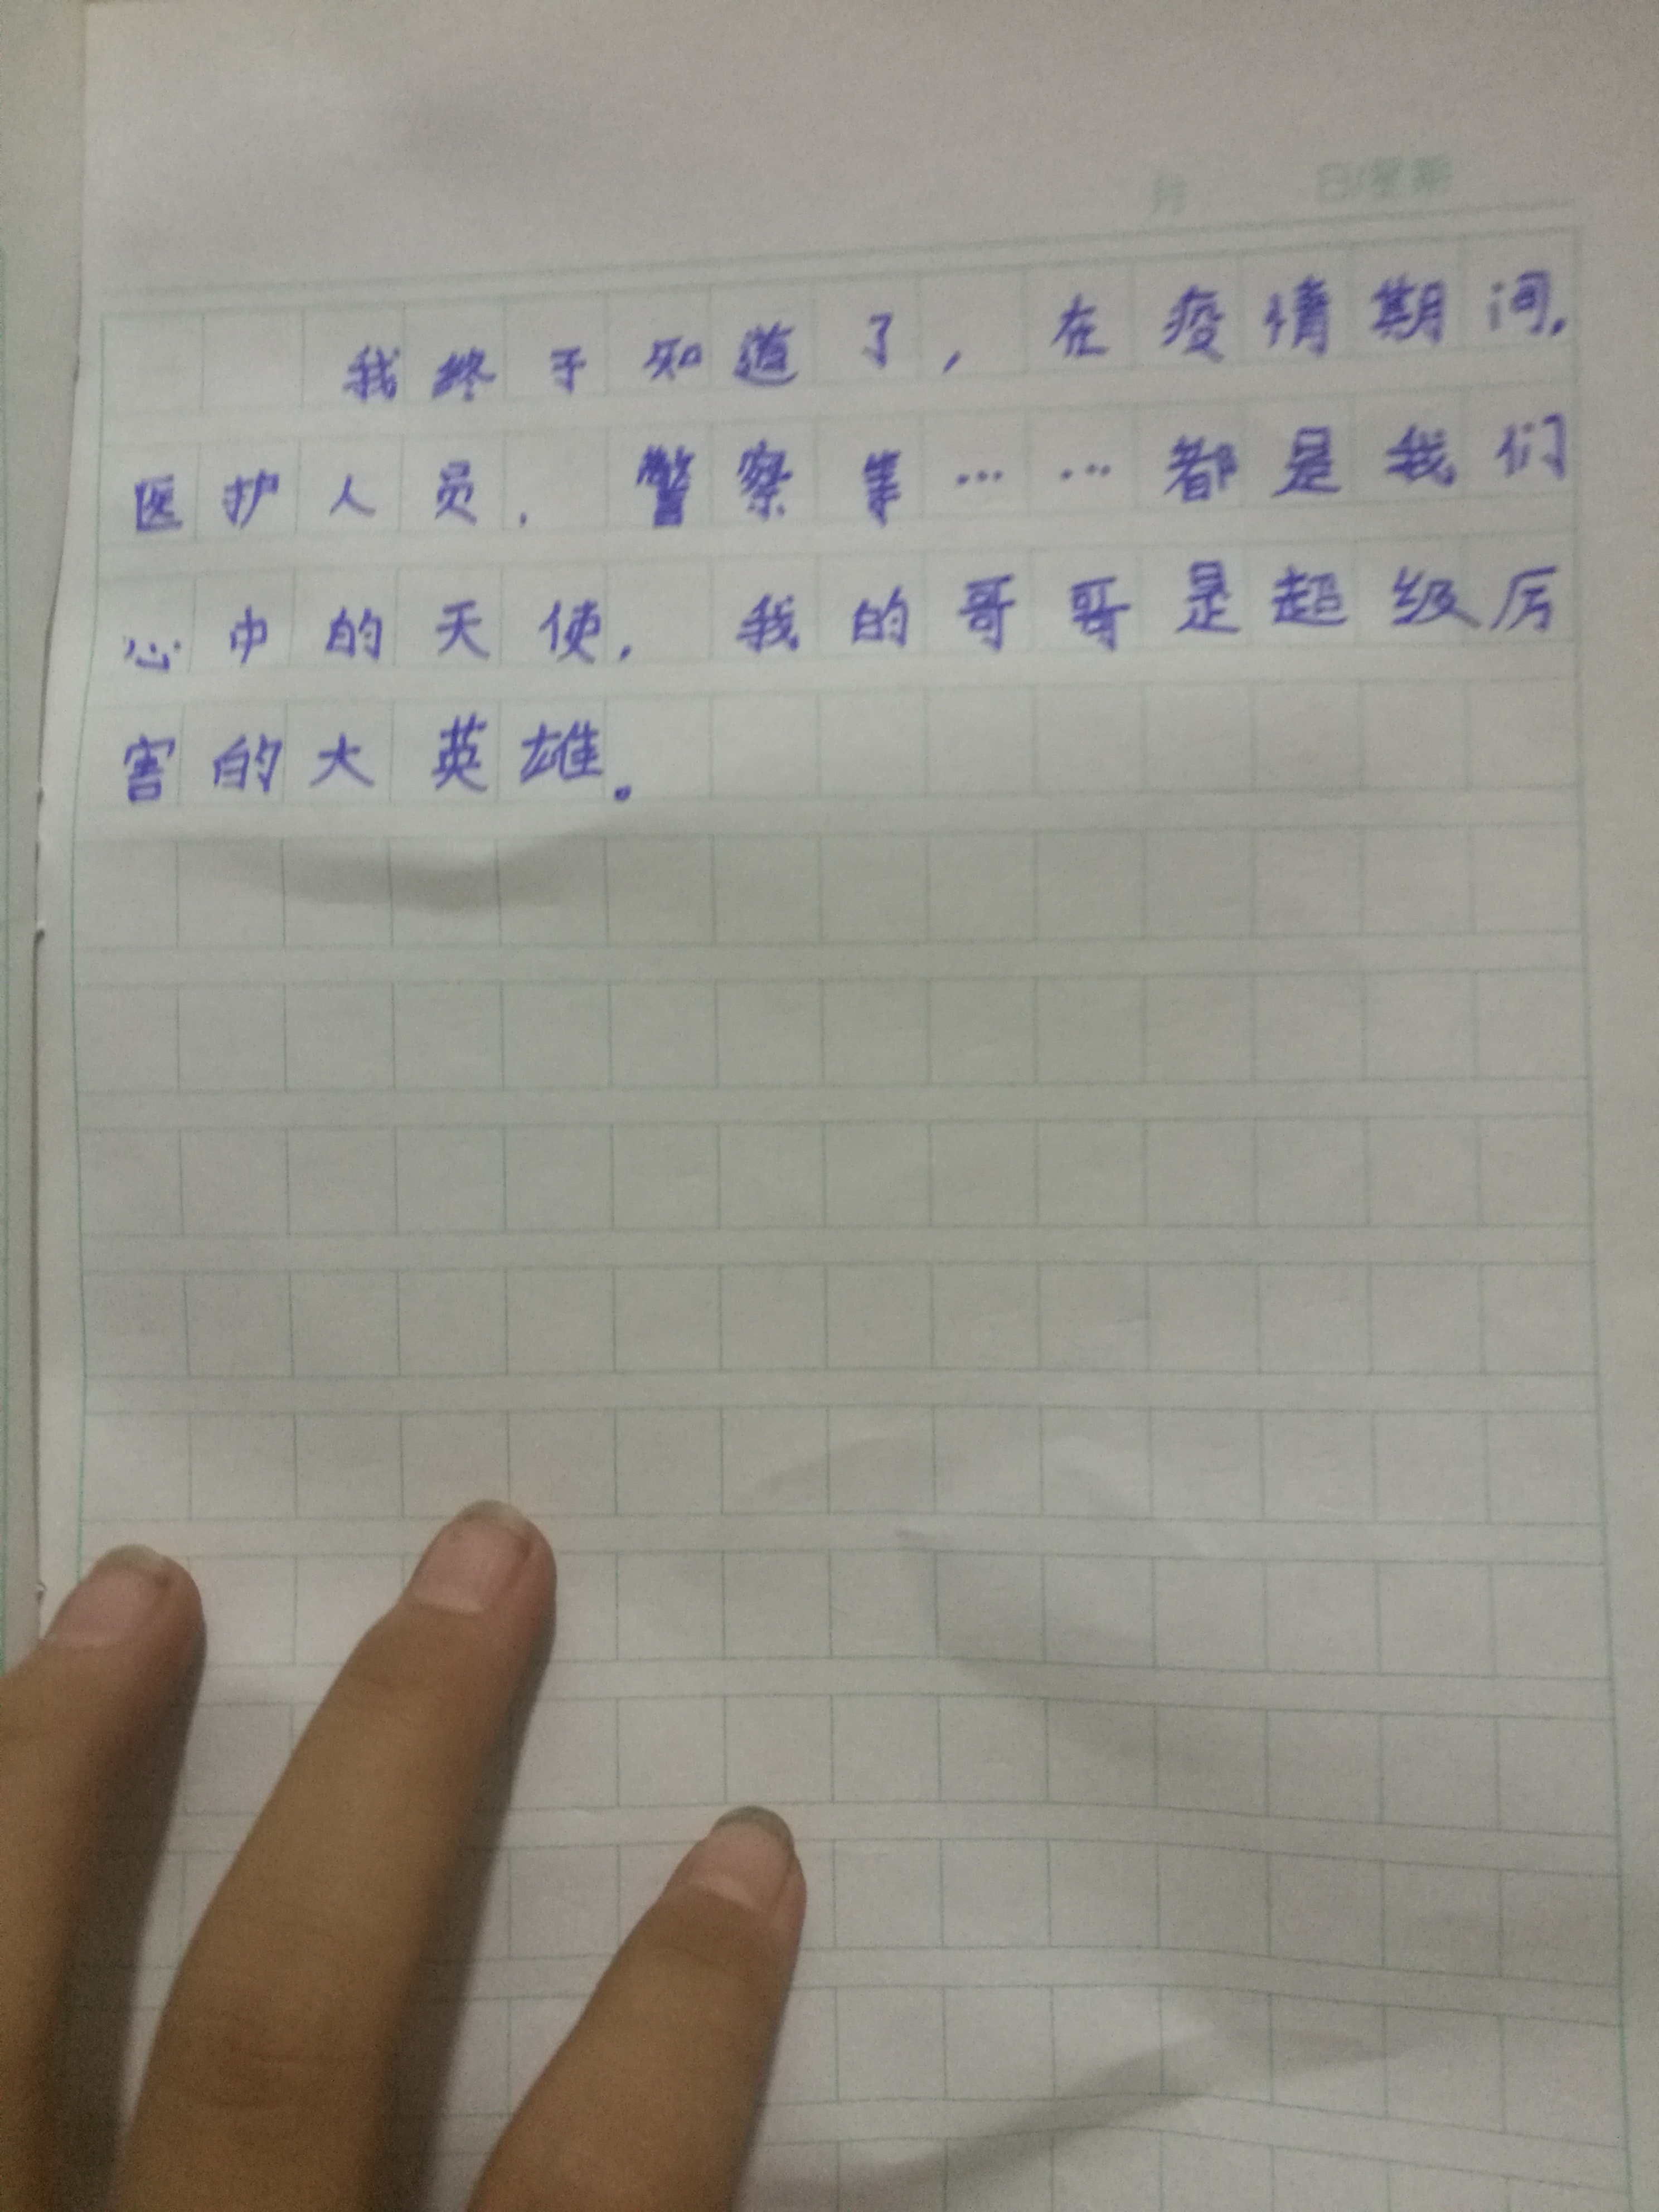 我终于知道了，在疫情期间，
医护人员，警察等……都是我们
心中的天使，我的哥哥是超级厉
害的大英雄。